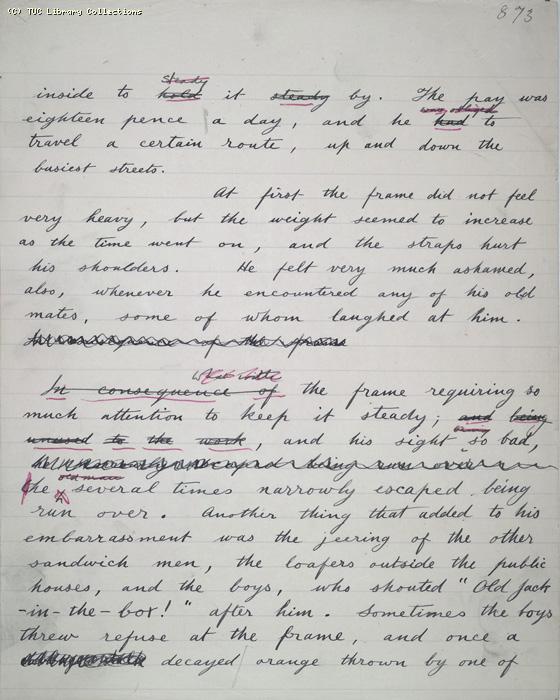 (C) TUC Library Collections
873
steady
inside to hold it steady by. The pay was
was obliged
eighteen pence a day, and he had to
travel a certain route, up and down the
busiest streets.
At first the frame did not feel
very heavy, but the weight seemed to increase
as the time went on, and the straps hurt
his shoulders. He felt very much ashamed,
also, whenever he encountered any of his old
mates, some of whom laughed at him.
In consequence of the frame
In consequence of the frame requiring so
much attention to keep it steady; and being
unused to the work, and his sight so bad,
he several times narrowly escaped being
run over. Another thing that added to his
embarrassment was the jeering of the other
sandwich men, the loafers outside the public
houses, and the boys, who shouted "Old Jack
-in-the-box!" after him. Sometimes the boys
threw refuse at the frame, and once a
decayed orange thrown by one of